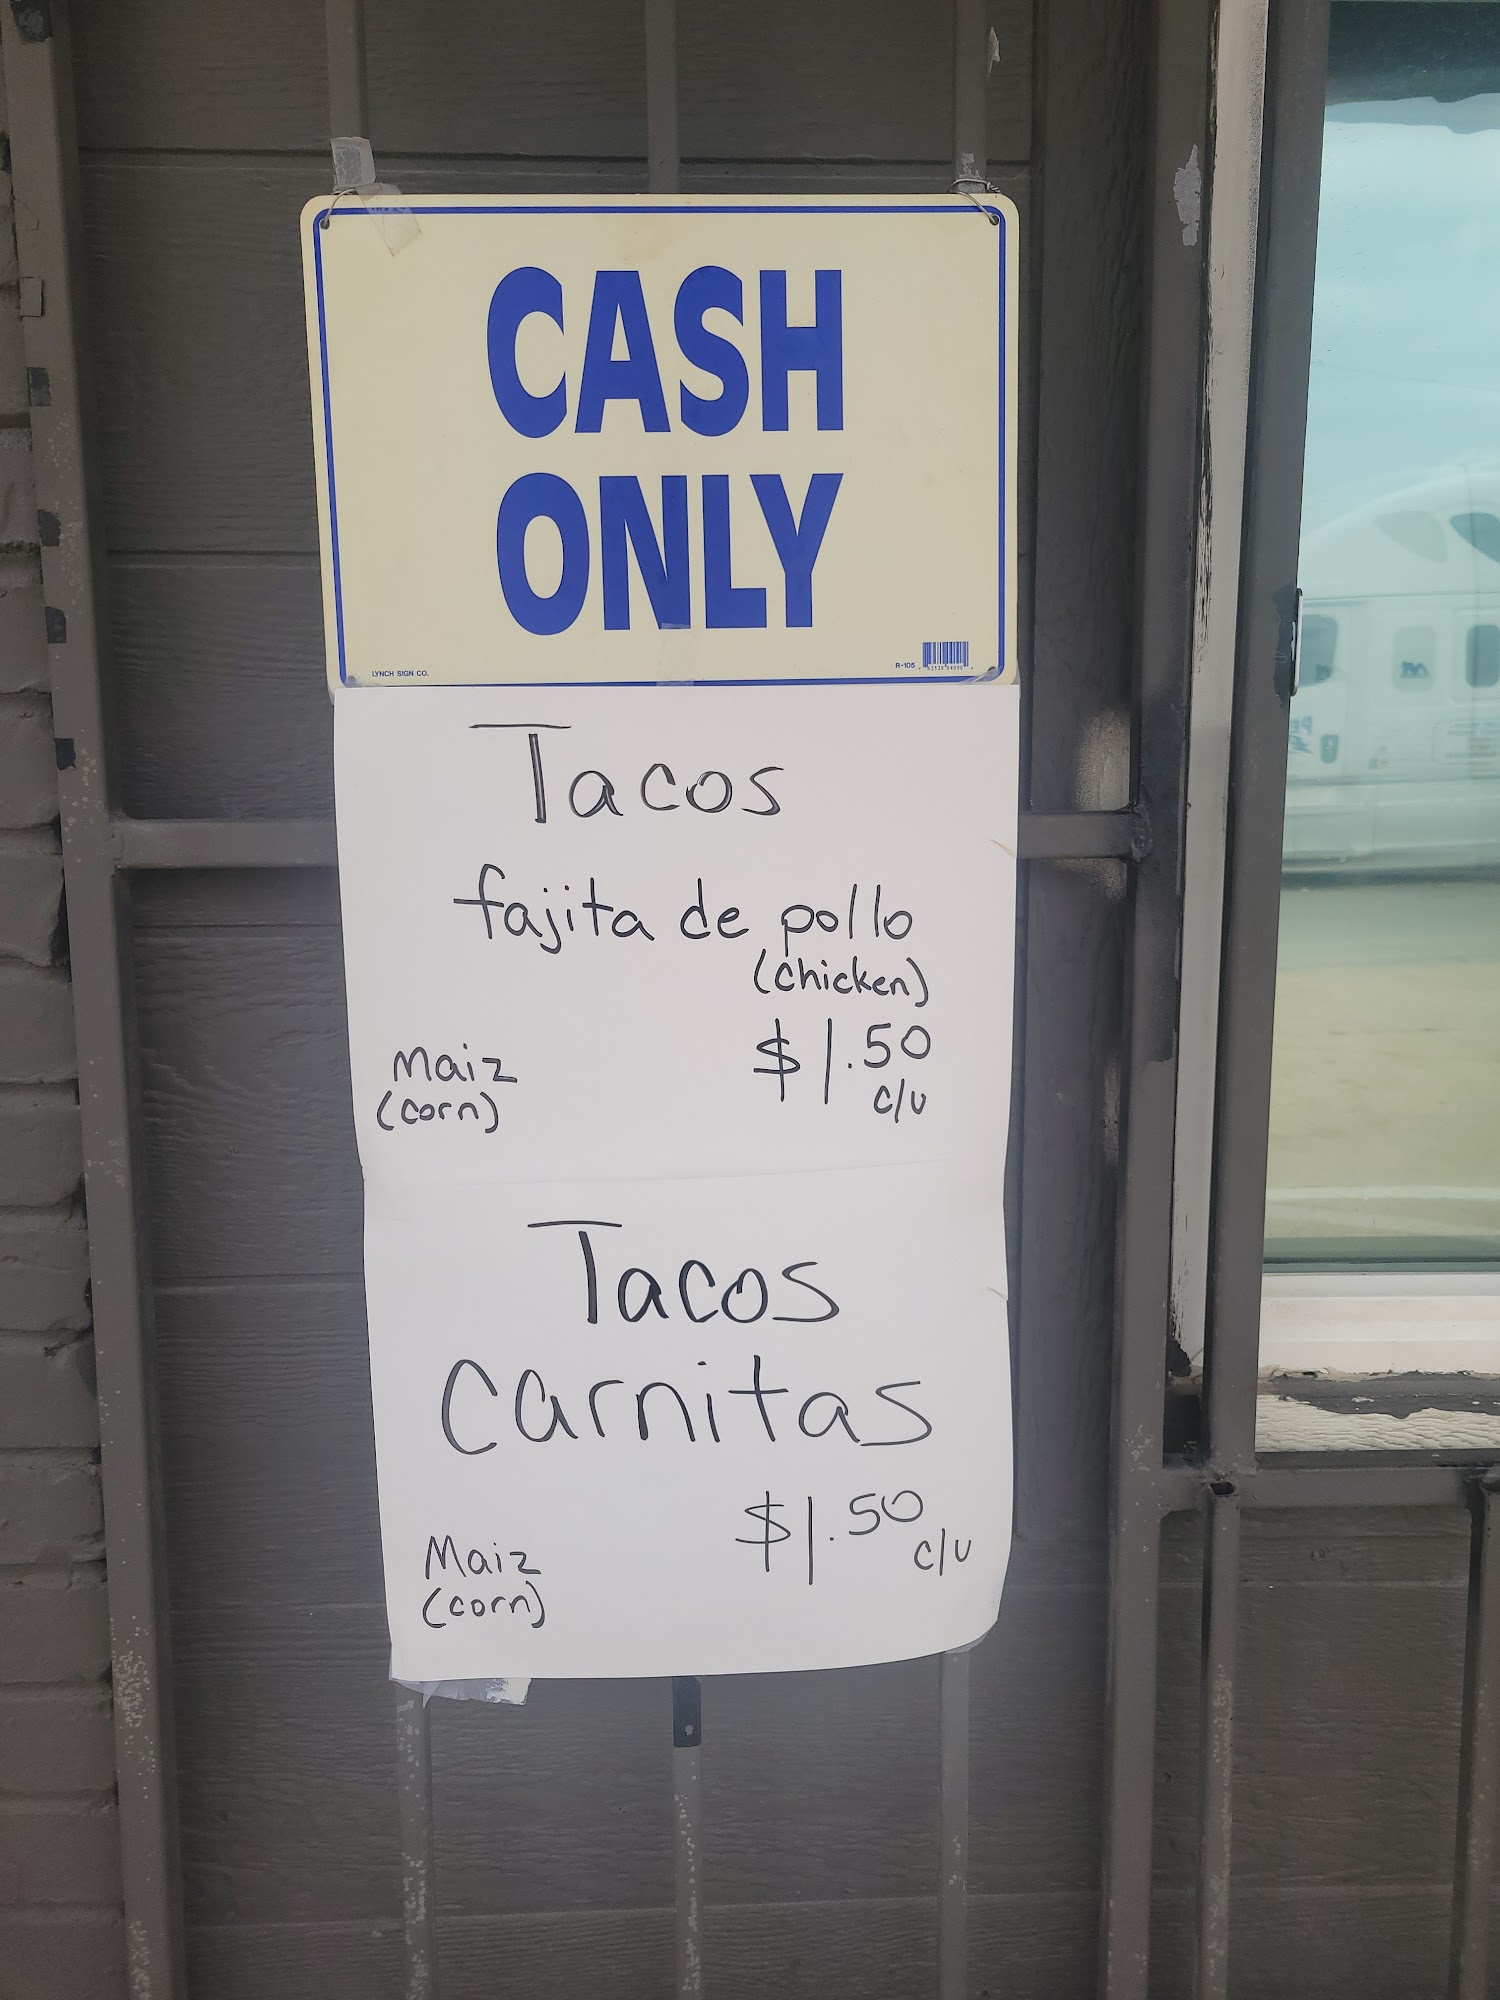 CASH
ONLY
LYNCH SIGN CO.
R-105
Tacos
fajita de pollo
(chicken)
$1.50
c/u
Maiz
(corn)
Tacos
Carnitas
$1.50
c/u
Maiz
(corn)